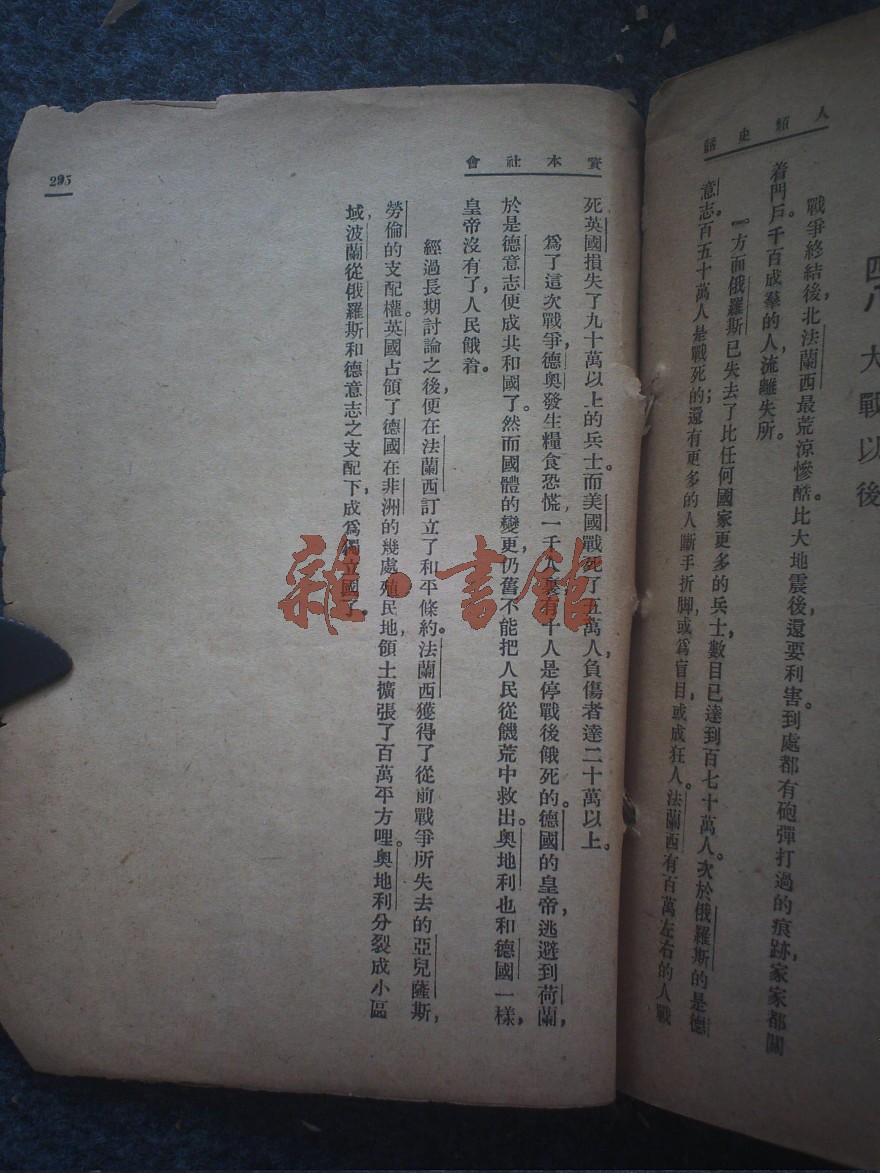 人類史話
四八 大戰以後
戰爭終結後，北法蘭西最荒涼慘酷。比大地震後，還要利害。到處都有砲彈打過的痕跡，家家都關
着門戶。千百成羣的人，流離失所。
一方面俄羅斯已失去了比任何國家更多的兵士，數目已達到百七十萬人。次於俄羅斯的是德
意志。百五十萬人是戰死的；還有更多的人斷手折脚，或爲盲目，或成狂人。法蘭西有百萬左右的人戰
資本社會
死，英國損失了九十萬以上的兵士。而美國戰死了五萬人，負傷者達二十萬以上。
爲了這次戰爭，德奧發生糧食恐慌，一千人裏有十人是停戰後餓死的。德國的皇帝，逃避到荷蘭，
於是德意志便成共和國了。然而國體的變更，仍舊不能把人民從饑荒中救出。奧地利也和德國一樣，
皇帝沒有了，人民餓着。
經過長期討論之後，便在法蘭西訂立了和平條約。法蘭西獲得了從前戰爭所失去的亞兒薩斯，
勞倫的支配權。英國占領了德國在非洲的幾處殖民地，領土擴張了百萬平方哩。奧地利分裂成小區
域，波蘭從俄羅斯和德意志之支配下，成爲獨立國了。
295
雜·書館